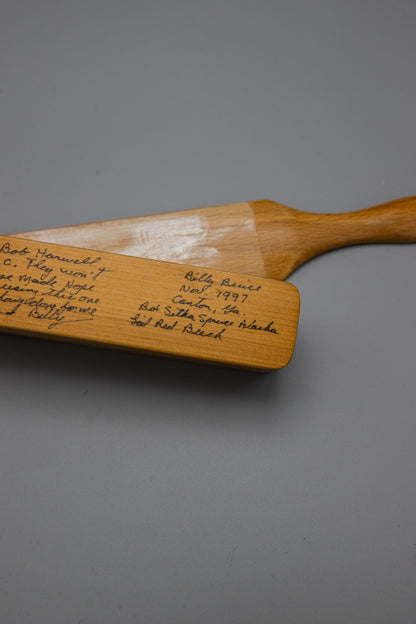 Bob Harwell
C. They won't
me made Hope
using this one
Billy
Billy Buice
Nov. 1997
Canton, Ga.
Bot Sitka Spruce Alaska
Lid Red Beech